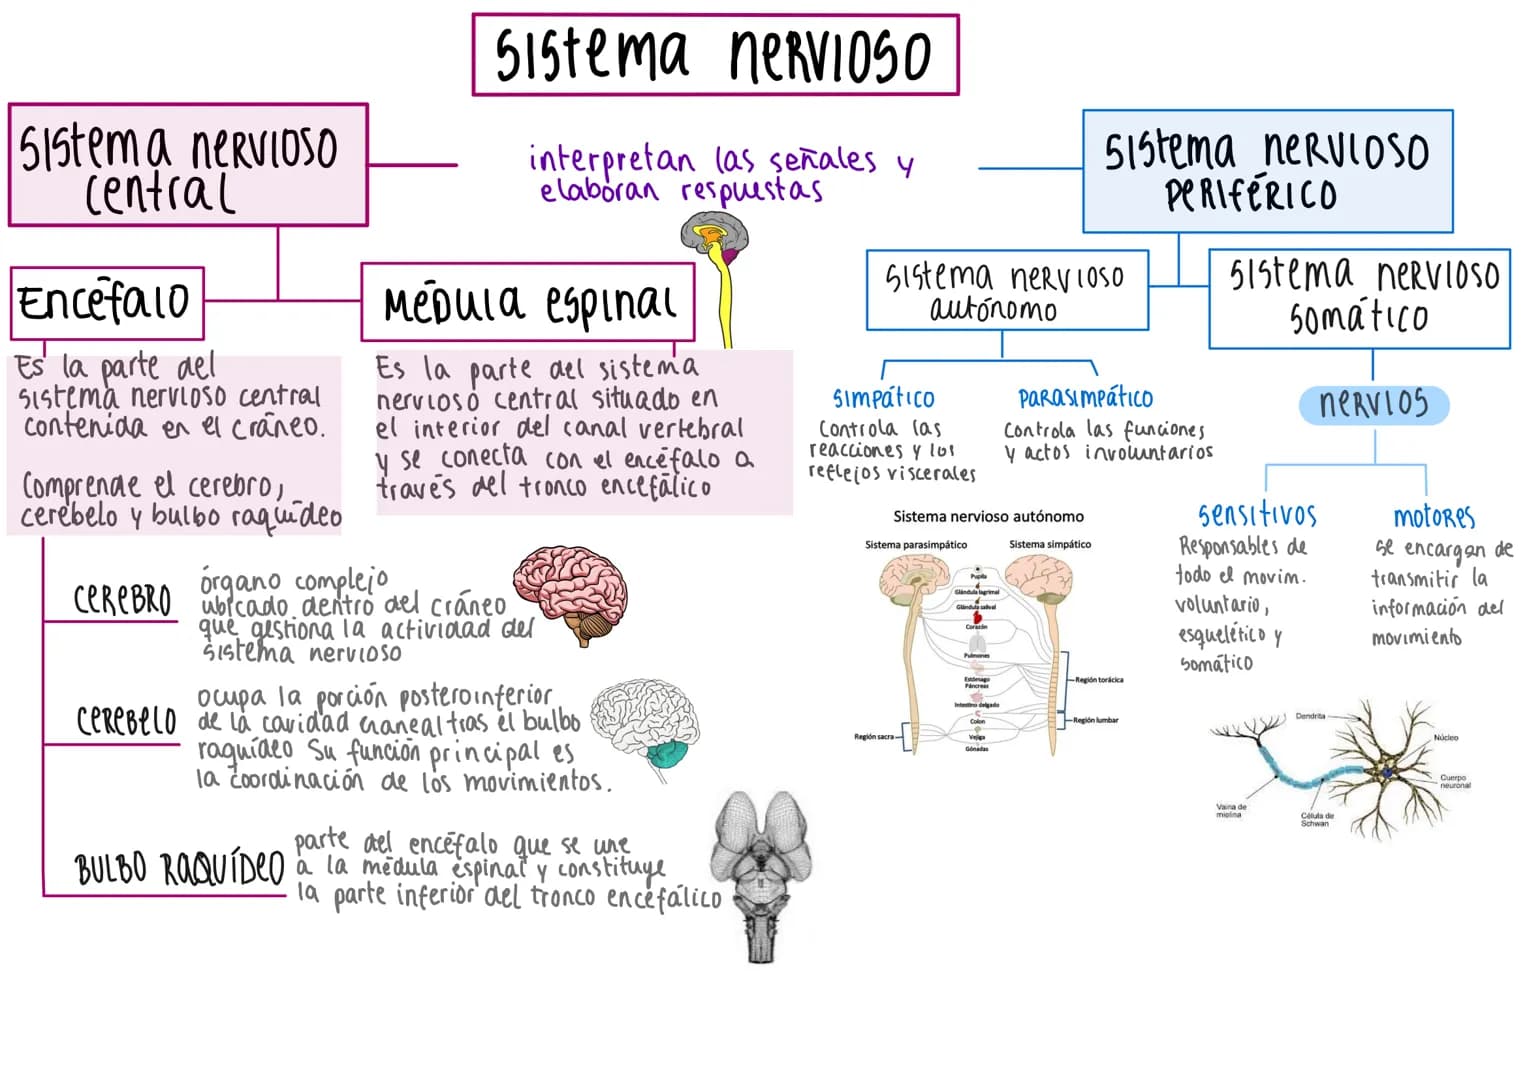 Sistema nervioso
Sistema nervioso
central
interpretan las señales y
elaboran respuestas
Sistema nervioso
periférico
Encéfalo
Médula espinal
Es la parte del
sistema nervioso central
contenida en el cráneo.
Comprende el cerebro,
cerebelo y bulbo raquídeo
Es la parte del sistema
nervioso central situado en
el interior del canal vertebral
y se conecta con el encéfalo a
través del tronco encefálico
CEREBRO
órgano complejo
ubicado dentro del cráneo
que gestiona la actividad del
sistema nervioso
CEREBELO
ocupa la porción posteroinferior
de la cavidad craneal tras el bulbo
raquídeo Su función principal es
la coordinación de los movimientos.
BULBO RAQUÍDEO
parte del encéfalo que se une
a la médula espinal y constituye
la parte inferior del tronco encefálico
Sistema nervioso
autónomo
Sistema nervioso
somático
simpático
Controla las
reacciones y los
reflejos viscerales
parasimpático
Controla las funciones
y actos involuntarios
nervios
sensitivos
Responsables de
todo el movim.
voluntario,
esquelético y
somático
motores
se encargan de
transmitir la
información del
movimiento
Sistema nervioso autónomo
Sistema parasimpático
Sistema simpático
Pupila
Glándula lagrimal
Glándula salival
Corazón
Pulmones
Estómago
Páncreas
Intestino delgado
Colon
Vejiga
Gónadas
Región torácica
Región lumbar
Región sacra
Dendrita
Núcleo
Cuerpo
neuronal
Vaina de
mielina
Célula de
Schwan